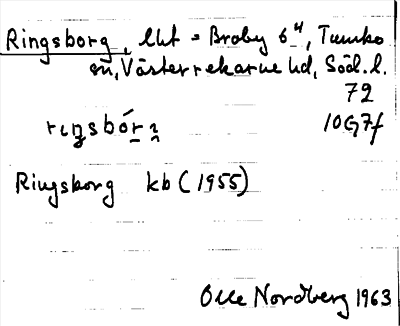 Ringsborg, lht = Broby 6⁴, Tumbo
sn, Västerrekarne hd, Söd. l.
72
10G7f
Ringsborg kb (1955)
Olle Nordberg 1963